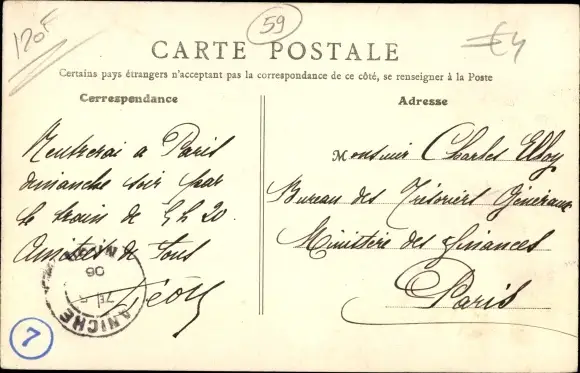 120F
59
€4
CARTE POSTALE
Certains pays étrangers n'acceptant pas la correspondance de ce côté, se renseigner à la Poste
Correspondance
Rentrerai a Paris
dimanche soir par
le train de 5h20.
Amitiés de tous
Léon
ANICHE
06
7
Adresse
Monsieur Charles Elloy
Bureau des Trésoriers Généraux
Ministère des Finances
Paris